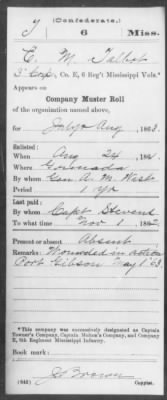 (Confederate.)
J 6 Miss.
C. M. Talbot
3" Corp, Co. E, 6 Reg't Mississippi Vols.*
Appears on
Company Muster Roll
of the organization named above,
for July & Aug, 1863.
Enlisted:
When Aug 24, 1861.
Where Grenada
By whom Gen A. M. West
Period 1 yr
Last paid:
By whom Capt Stevens
To what time Nov 1, 1862
Present or absent Absent
Remarks: Wounded in action
Port Gibson May 1" 63.
*This company was successively designated as Captain
Company and Company
E, 6th Regiment Mississippi Infantry.
Book mark:
(642) J. Brown
Copyist.